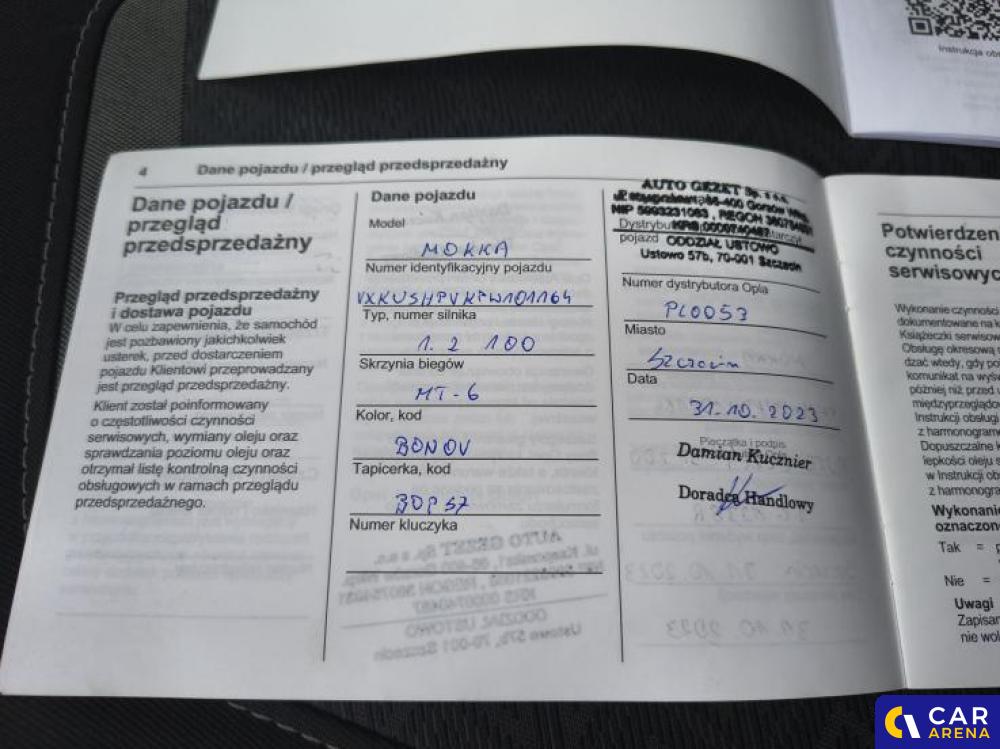 Instrukcja obs
4 Dane pojazdu / przegląd przedsprzedażny
Dane pojazdu /
przegląd
przedsprzedażny
Przegląd przedsprzedażny
i dostawa pojazdu
W celu zapewnienia, że samochód
jest pozbawiony jakichkolwiek
usterek, przed dostarczeniem
pojazdu Klientowi przeprowadzany
jest przegląd przedsprzedażny.
Klient został poinformowany
o częstotliwości czynności
serwisowych, wymiany oleju oraz
sprawdzania poziomu oleju oraz
otrzymał listę kontrolną czynności
obsługowych w ramach przeglądu
przedsprzedażnego.
Dane pojazdu
Model
MOKKA
Numer identyfikacyjny pojazdu
VXKUSHPVKPW101164
Typ, numer silnika
1.2 100
Skrzynia biegów
MT-6
Kolor, kod
BONOV
Tapicerka, kod
BOPS7
Numer kluczyka
AUTO GEZET Sp. z o.o.
66-400 Gorzów Wlkp.
NIP 5993231063, REGON
KRS 0000740487
pojazd ODDZIAŁ USTOWO
Ustowo 57b, 70-001 Szczecin
Numer dystrybutora Opla
PL0053
Miasto
Szczecin
Data
31.10.2023
Pieczątka i podpis
Damian Kucznier
Doradca Handlowy
Potwierdzen
czynności
serwisowyc
Wykonanie czynności
dokumentowane na k
Książeczki serwisow
Obsługę okresową
dzać wtedy, gdy po
komunikat na wyś
później niż przed
międzyprzeglądo
Instrukcji obsługi
z harmonogram
Dopuszczalne
lepkości oleju s
w Instrukcji ob
z harmonogra
Wykonanie
oznaczono
Tak = p
Nie =
Uwagi
Zapisan
nie wol
CAR
ARENA